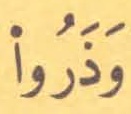 وَذَرُوا۟